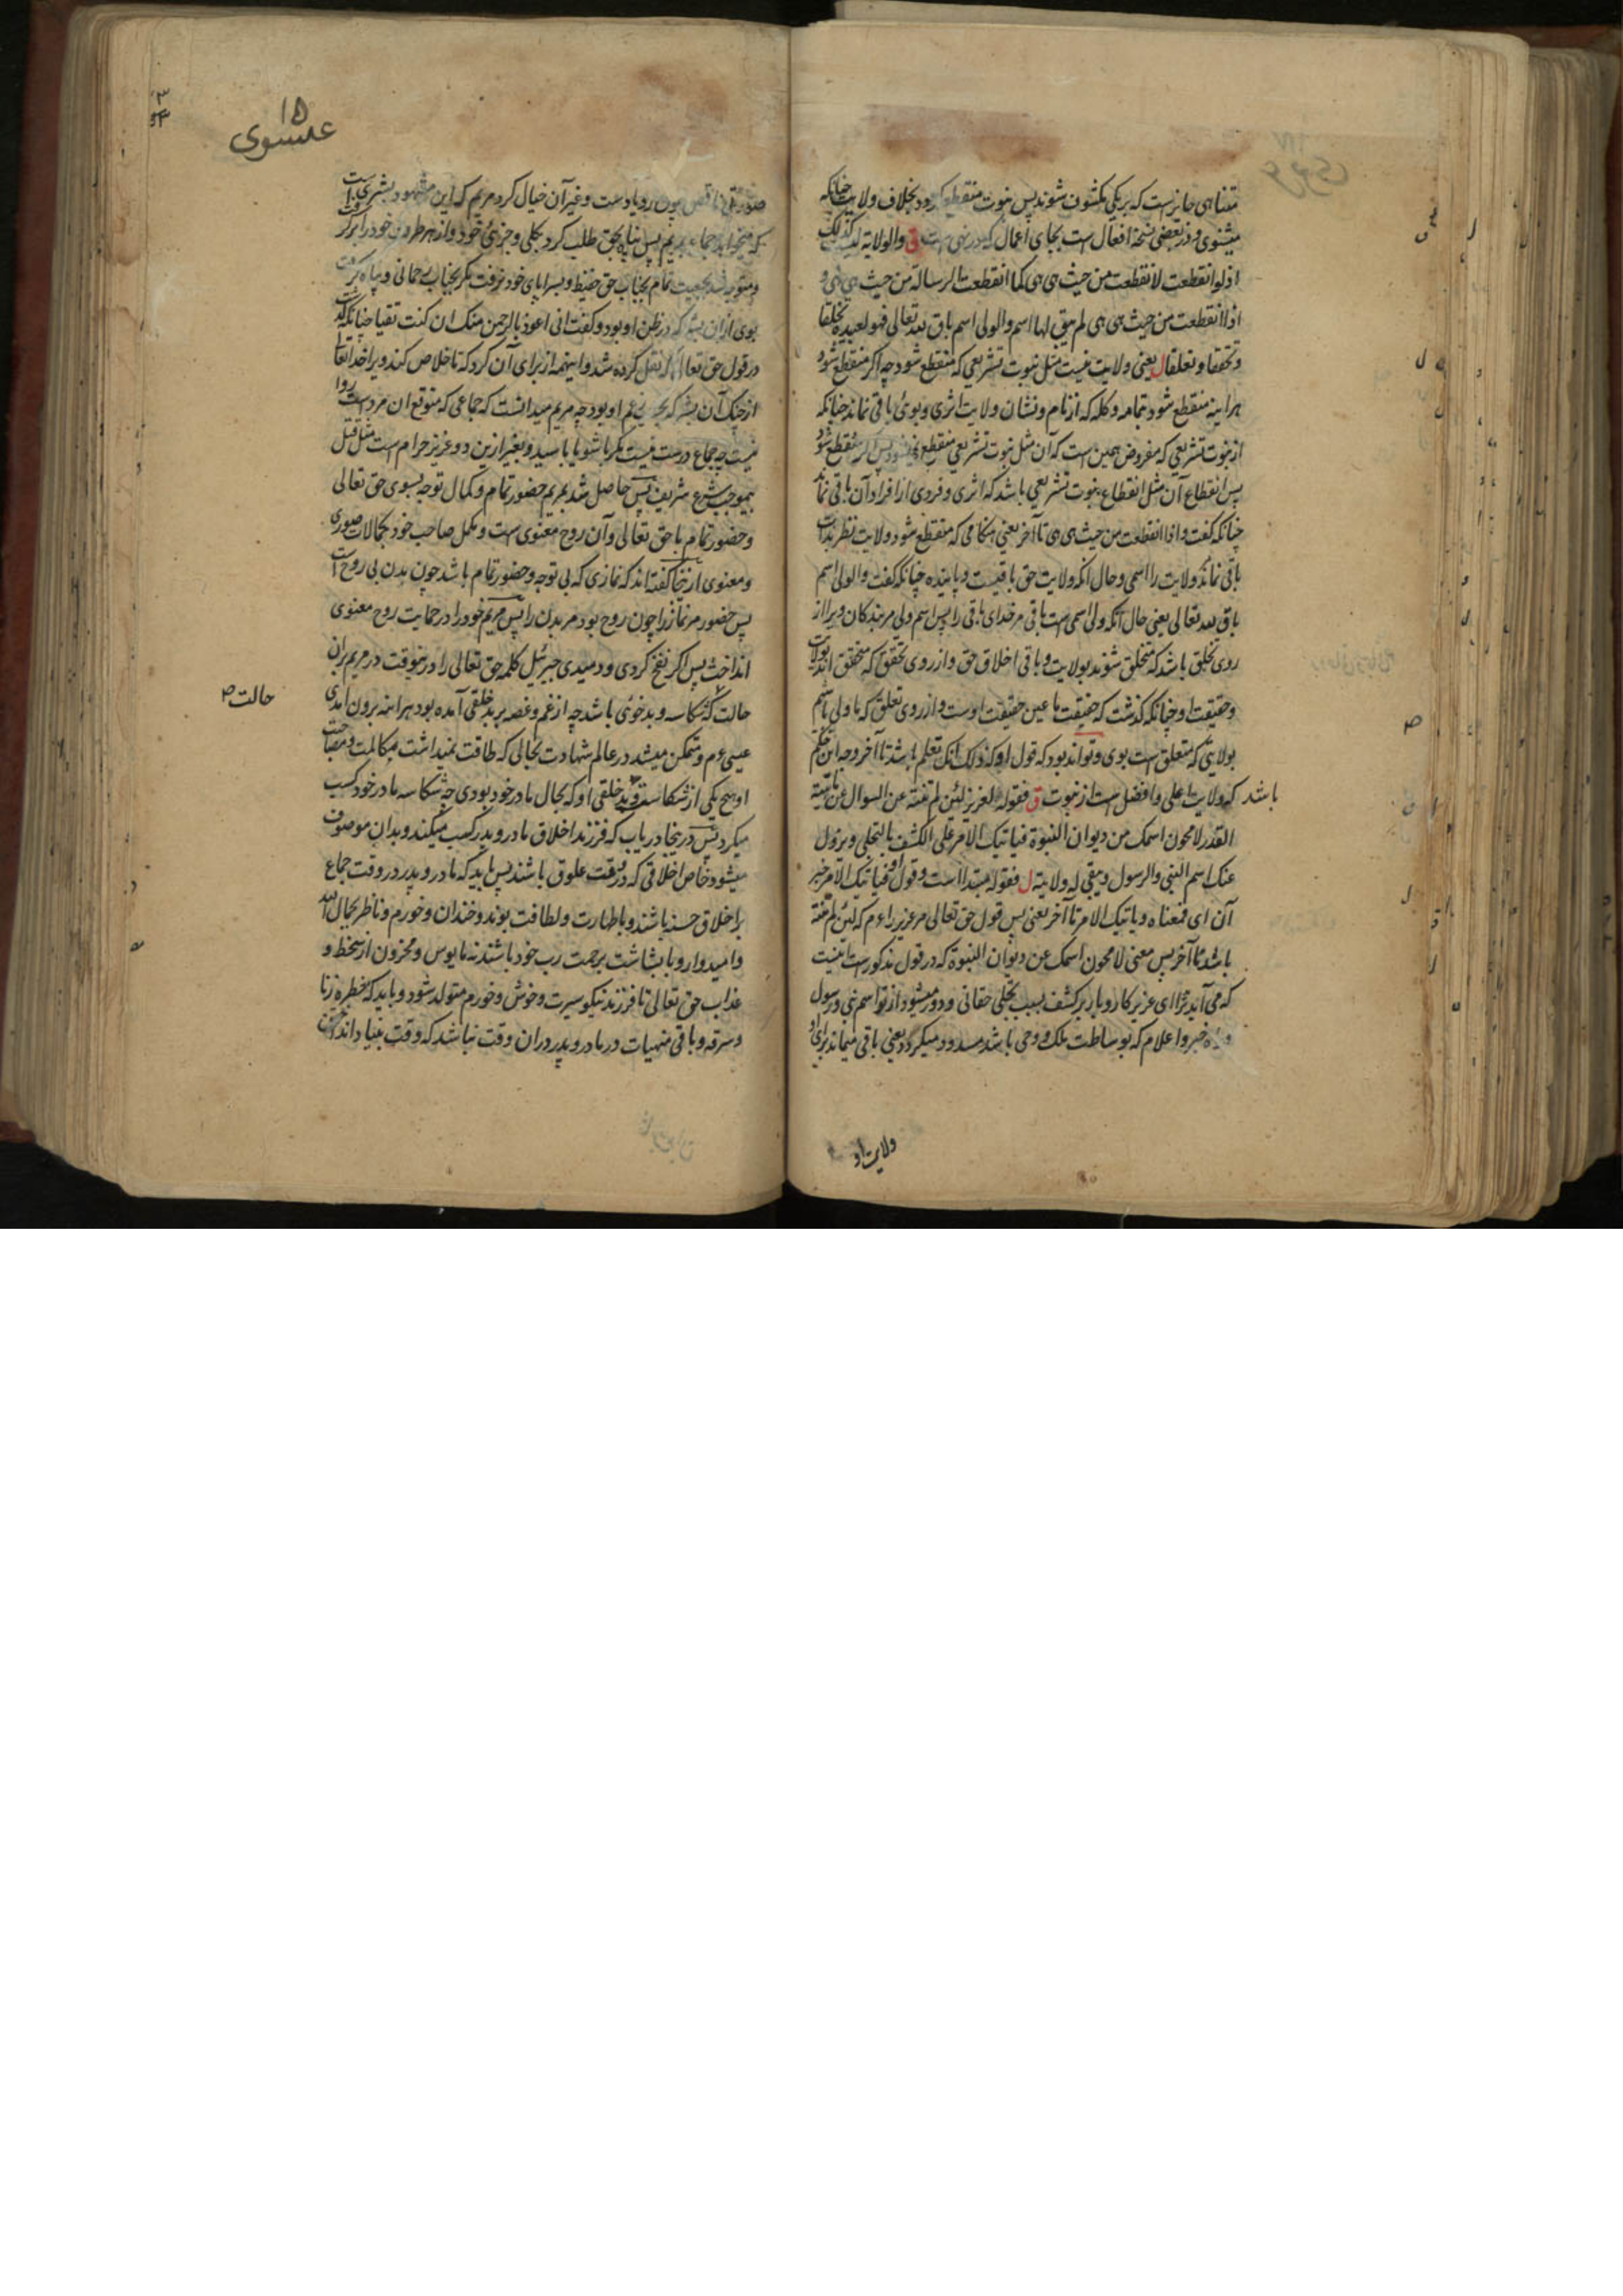 متناهی جایز است که بر یکی مکشوف شوند پس نبوت منقطع کردد بخلاف ولایت چنانکه
میشنوی و در بعضی نسخه افعال است بجای اعمال ق والولایة لیست کذلک
اذ لو انقطعت لانقطعت من حیث هی هی کما انقطعت الرسالة من حیث هی هی و
اذا انقطعت من حیث هی هی لم یبق لها اسم والولی اسم باق لله تعالی فهو لعبیده تخلقا
و تحققا و تعلقا ل یعنی ولایت نیست مثل نبوت تشریعی که منقطع شود چه اکر منقطع شود
هراینه منقطع شود بتمامه و کله که از نام و نشان ولایت اثری و بوئی باقی نماند چنانکه
از نبوت تشریعی که مفروض همین است که آن مثل نبوت تشریعی منقطع میشود پس اکر منقطع شود
پس انقطاع آن مثل انقطاع نبوت تشریعی باشد که اثری و فردی از افراد آن باقی نماند
چنانکه کفت و اذا انقطعت من حیث هی هی تا آخر یعنی هنکامی که منقطع شود ولایت نظر بذات
باقی نماند ولایت را اسمی و حال آنکه ولایت حق باقیست و پاینده چنانکه کفت والولی اسم
باق لله تعالی یعنی حال آنکه ولی اسمی است باقی مر خدای باقی را پس اسم ولی مر بندکان ویرا از
روی تخلق باشد که متخلق شوند بولایت و باقی اخلاق حق و از روی تحقق که متحقق اند بولایت
و حقیقت او چنانکه کذشت که حقیقت ما عین حقیقت اوست و از روی تعلق که با ولی باشم
بولایتی که متعلق است بوی و تواند بود که قول او که ذلک انک تعلم باشد تا آخر وجه این حکم
باشد که ولایت اعلی و افضل است از نبوت ق فقوله للعزیر لئن لم تنته عن السوال عن ماهیة
القدر لامحون اسمک من دیوان النبوة فیاتیک الامر علی الکشف بالتجلی و یزول
عنک اسم النبی والرسول و یبقی له ولایته ل فقوله مبتدا است و قول او فیاتیک الامر خبر
آن ای فمعناه و یاتیک الامر تا آخر یعنی پس قول حق تعالی مر عزیر را ع م که لئن لم تنته
باشد تا آخر پس معنی لامحون اسمک عن دیوان النبوة که در قول مذکور است اینست
که می آید ترا ای عزیر کار و بار بر کشف بسبب تجلی حقانی و دور میشود از تو اسم نبی و رسول
خبر و اعلام که بوساطت ملک و وحی باشد مسدود میکردد یعنی باقی میماند برای او
ولایت او
۱۵
عیسوی
صورتی ناقص چون و غیر آن خیال کرد مریم که این مشهود بشری است
که میخواهد جماع مریم پس پناه بحق طلب کرد بکلی و جزئی خود و از هر طرف خود را
تمام بجناب حق حفیظ و بسراپای خود نرفت مکر بجناب رحمانی و پناه کرفت
بوی از آن بشر که در ظن او بود و کفت انی اعوذ بالرحمن منک ان کنت تقیا چنانکه کذشت
در قول حق تعالی که نقل کرده شد و اینهمه از برای آن کرد که تا خلاص کند ویرا خدایتعالی
از چنک آن بشر که بود چه مریم میدانست که جماعی که متوقع ان مرد است روا
نیست چه جماع درست نیست مکر با شوی یا با سید و بغیر ازین دو عزیز حرام است مثل قتل
بموجب شرع شریف پس حاصل شد بمریم حضور تمام و کمال توجه بسوی حق تعالی
و حضور تمام با حق تعالی و آن روح معنوی است و مکمل صاحب خود بکمالات صوری
و معنوی از اینجا کفته اند که نمازی که بی توجه و حضور تمام باشد چون بدن بی روح است
پس حضور مر نماز را چون روح بود مر بدن را پس مریم خود را در حمایت روح معنوی
انداخت پس اکر نفخ کردی و دمیدی جبرئیل کلمه حق تعالی را در نوقت در مریم بران
حالت که شکاسه و بدخوئی باشد چه از غم و غصه بر بدخلقی آمده بود هراینه برون آمدی
حالت ص
عیسی ع م و متمکن میشد در عالم شهادت بحالی که طاقت نمیداشت مکالمت و مصاحبت
او هیچ یکی از شکاست و بدخلقی او که بحال مادر خود بودی چه شکاسه مادر خود کسب
میکرد پس در ینجا دریاب که فرزند اخلاق مادر و پدر کسب میکند و بدان موصوف
میشود خاص اخلاقی که در وقت علوق باشند پس باید که مادر و پدر در وقت جماع
بر اخلاق حسنه باشند و باطهارت و لطافت بوند و خندان و خورم و ناظر بجمال الله
و امیدوار و با بشاشت برحمت رب خود باشند نه مایوس و محزون از سخط و
عذاب حق تعالی تا فرزند نیکو سیرت و خوش و خورم متولد شود و باید که خطره زنا
و سرقه و باقی منهیات در مادر و پدر دران وقت نباشد که وقت بنیاد